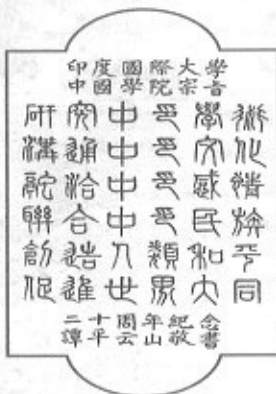 印度國際大學
中國學院宗音
研究中印學術
溝通中印文化
融洽中印感情
聯合中印民族
創造人類和平
促進世界大同
二十周年紀念
譚平云山敬書